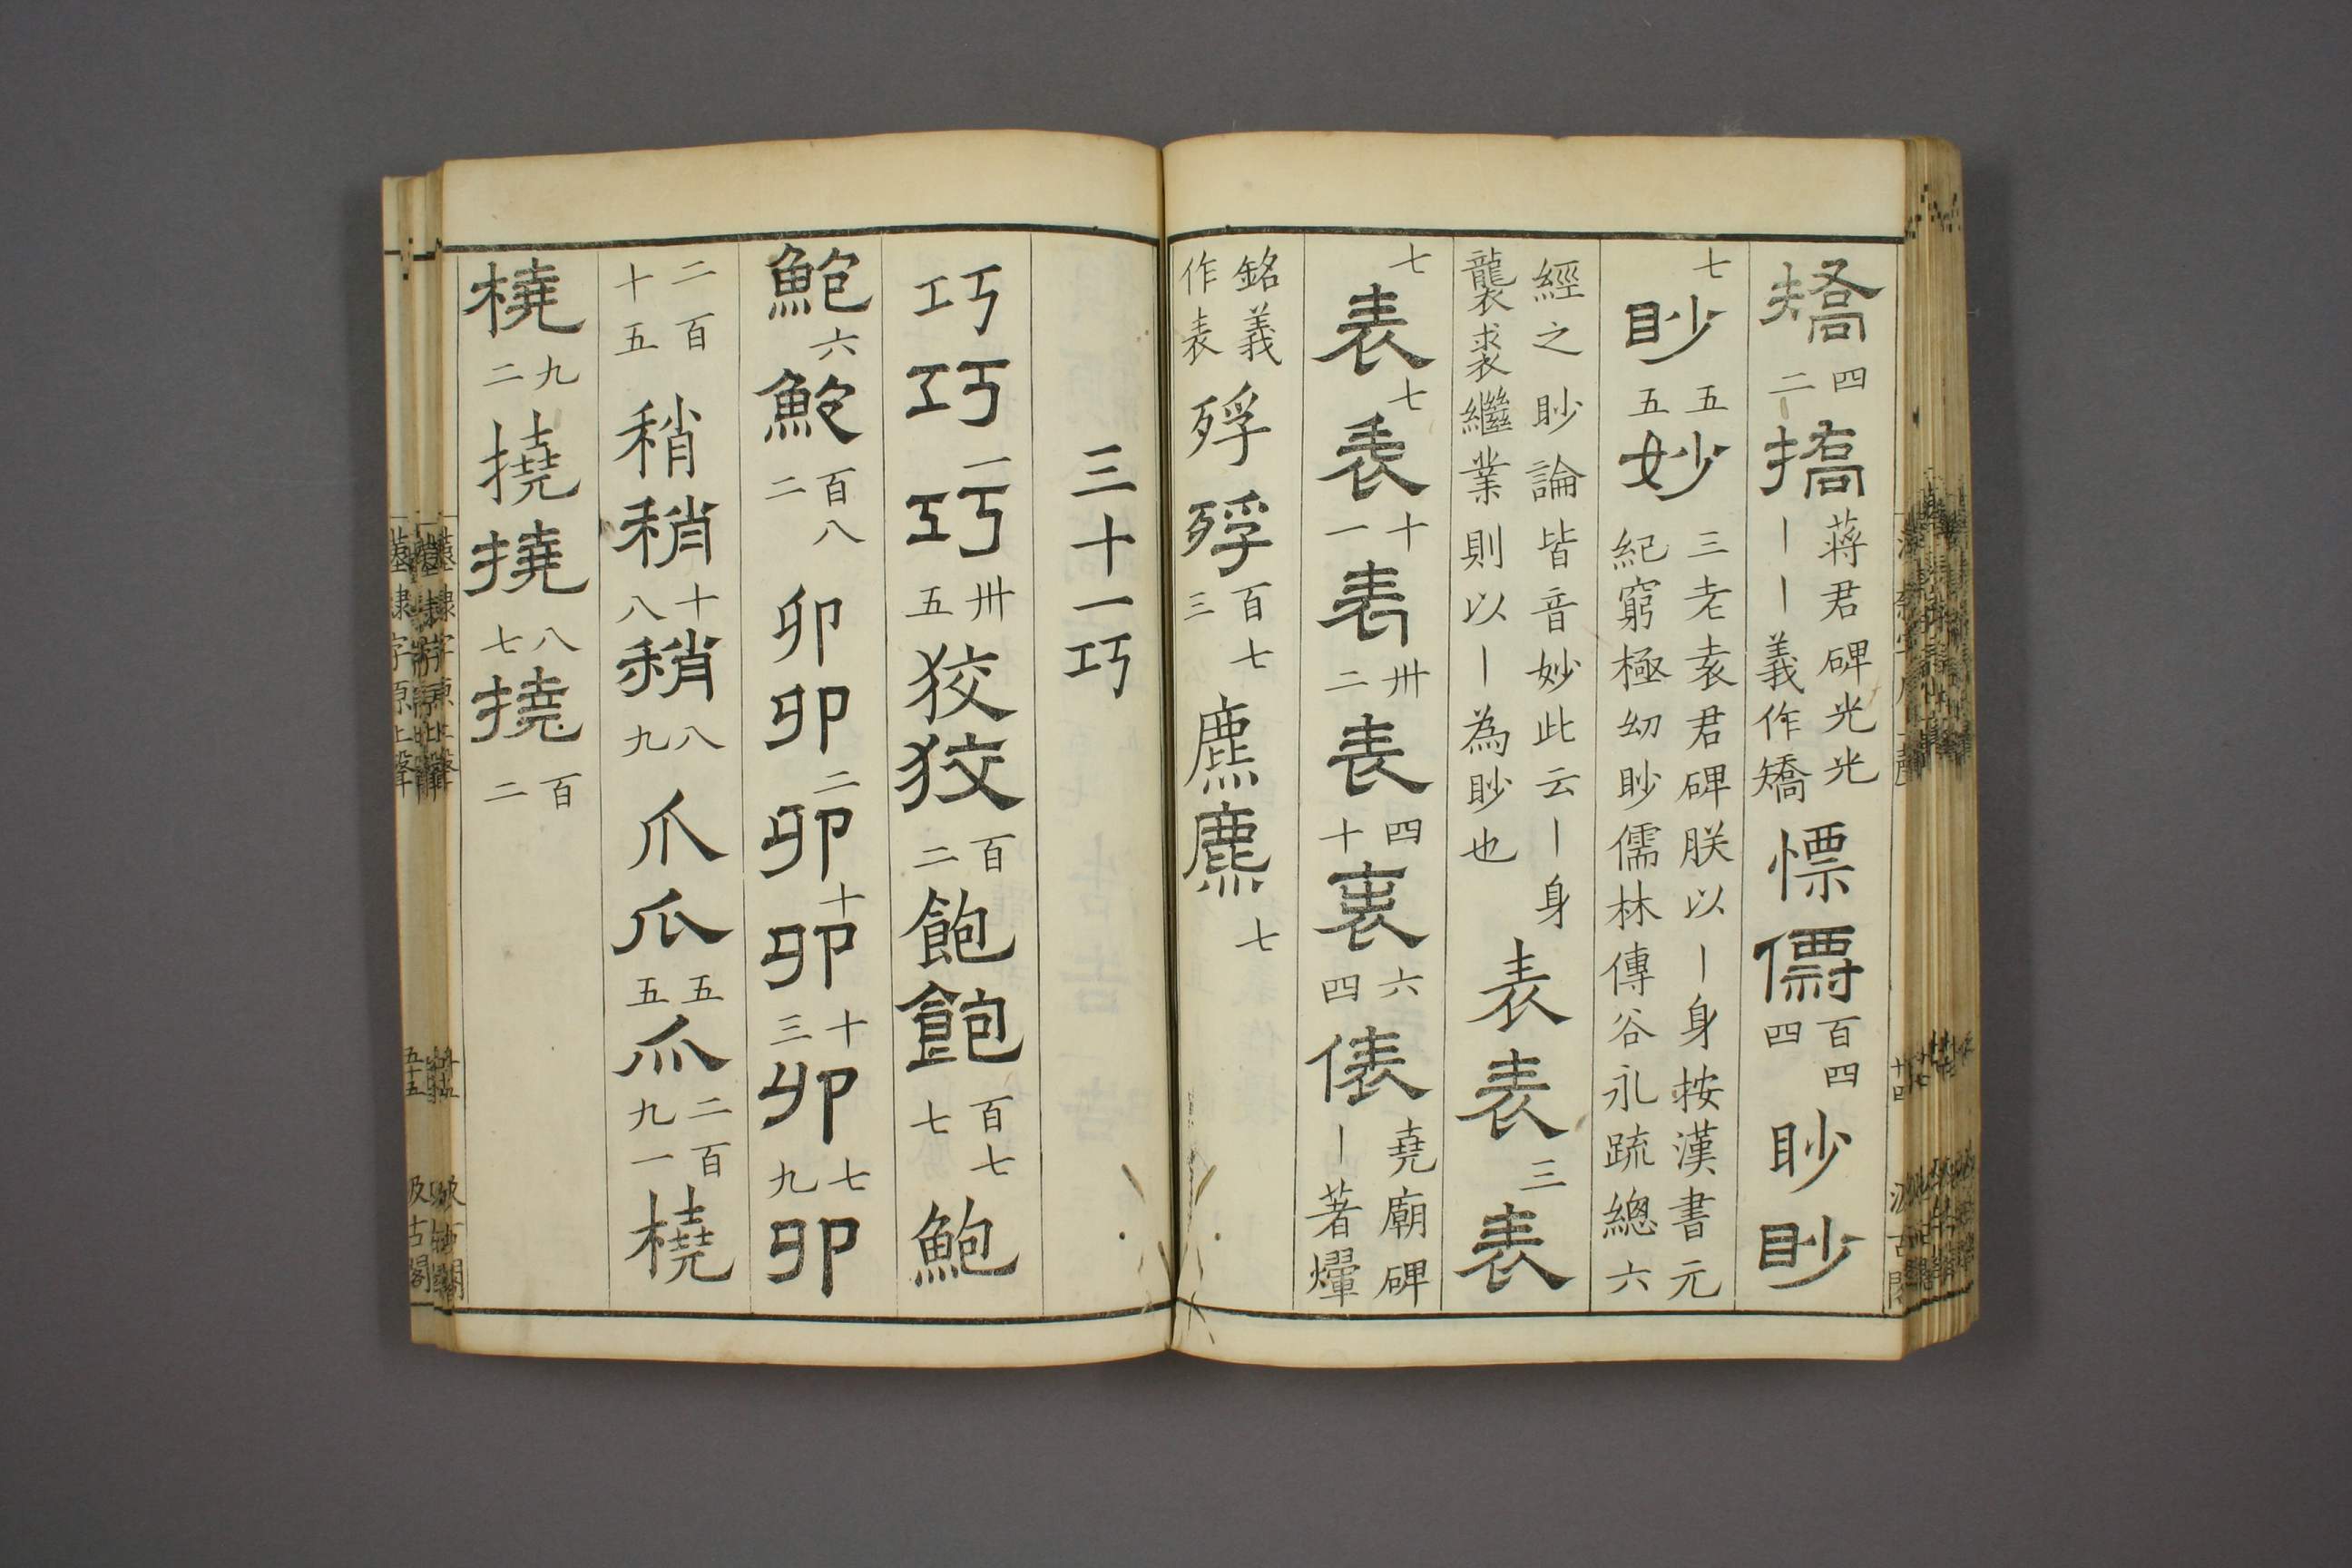 矯四二撟蔣君碑光光丨丨義作矯慓僄百四四眇眇
七眇五五妙三老袁君碑朕以丨身按漢書元紀窮極幼眇儒林傳谷永疏總六
經之眇論皆音妙此云丨身襲裘繼業則以丨為眇也表表三表
七表七表十一表卅二表四十裵六四俵堯廟碑丨著燿
銘義作表殍殍百七三麃麃七
三十一巧
巧巧一巧卅五狡狡百二飽飽百七七鮑
鮑六鮫百八二卯卯二卯十卯十三卯七九卯
二百十五稍稍十八稍八九爪爪五五爪二百九一橈
橈九二撓撓八七撓百二